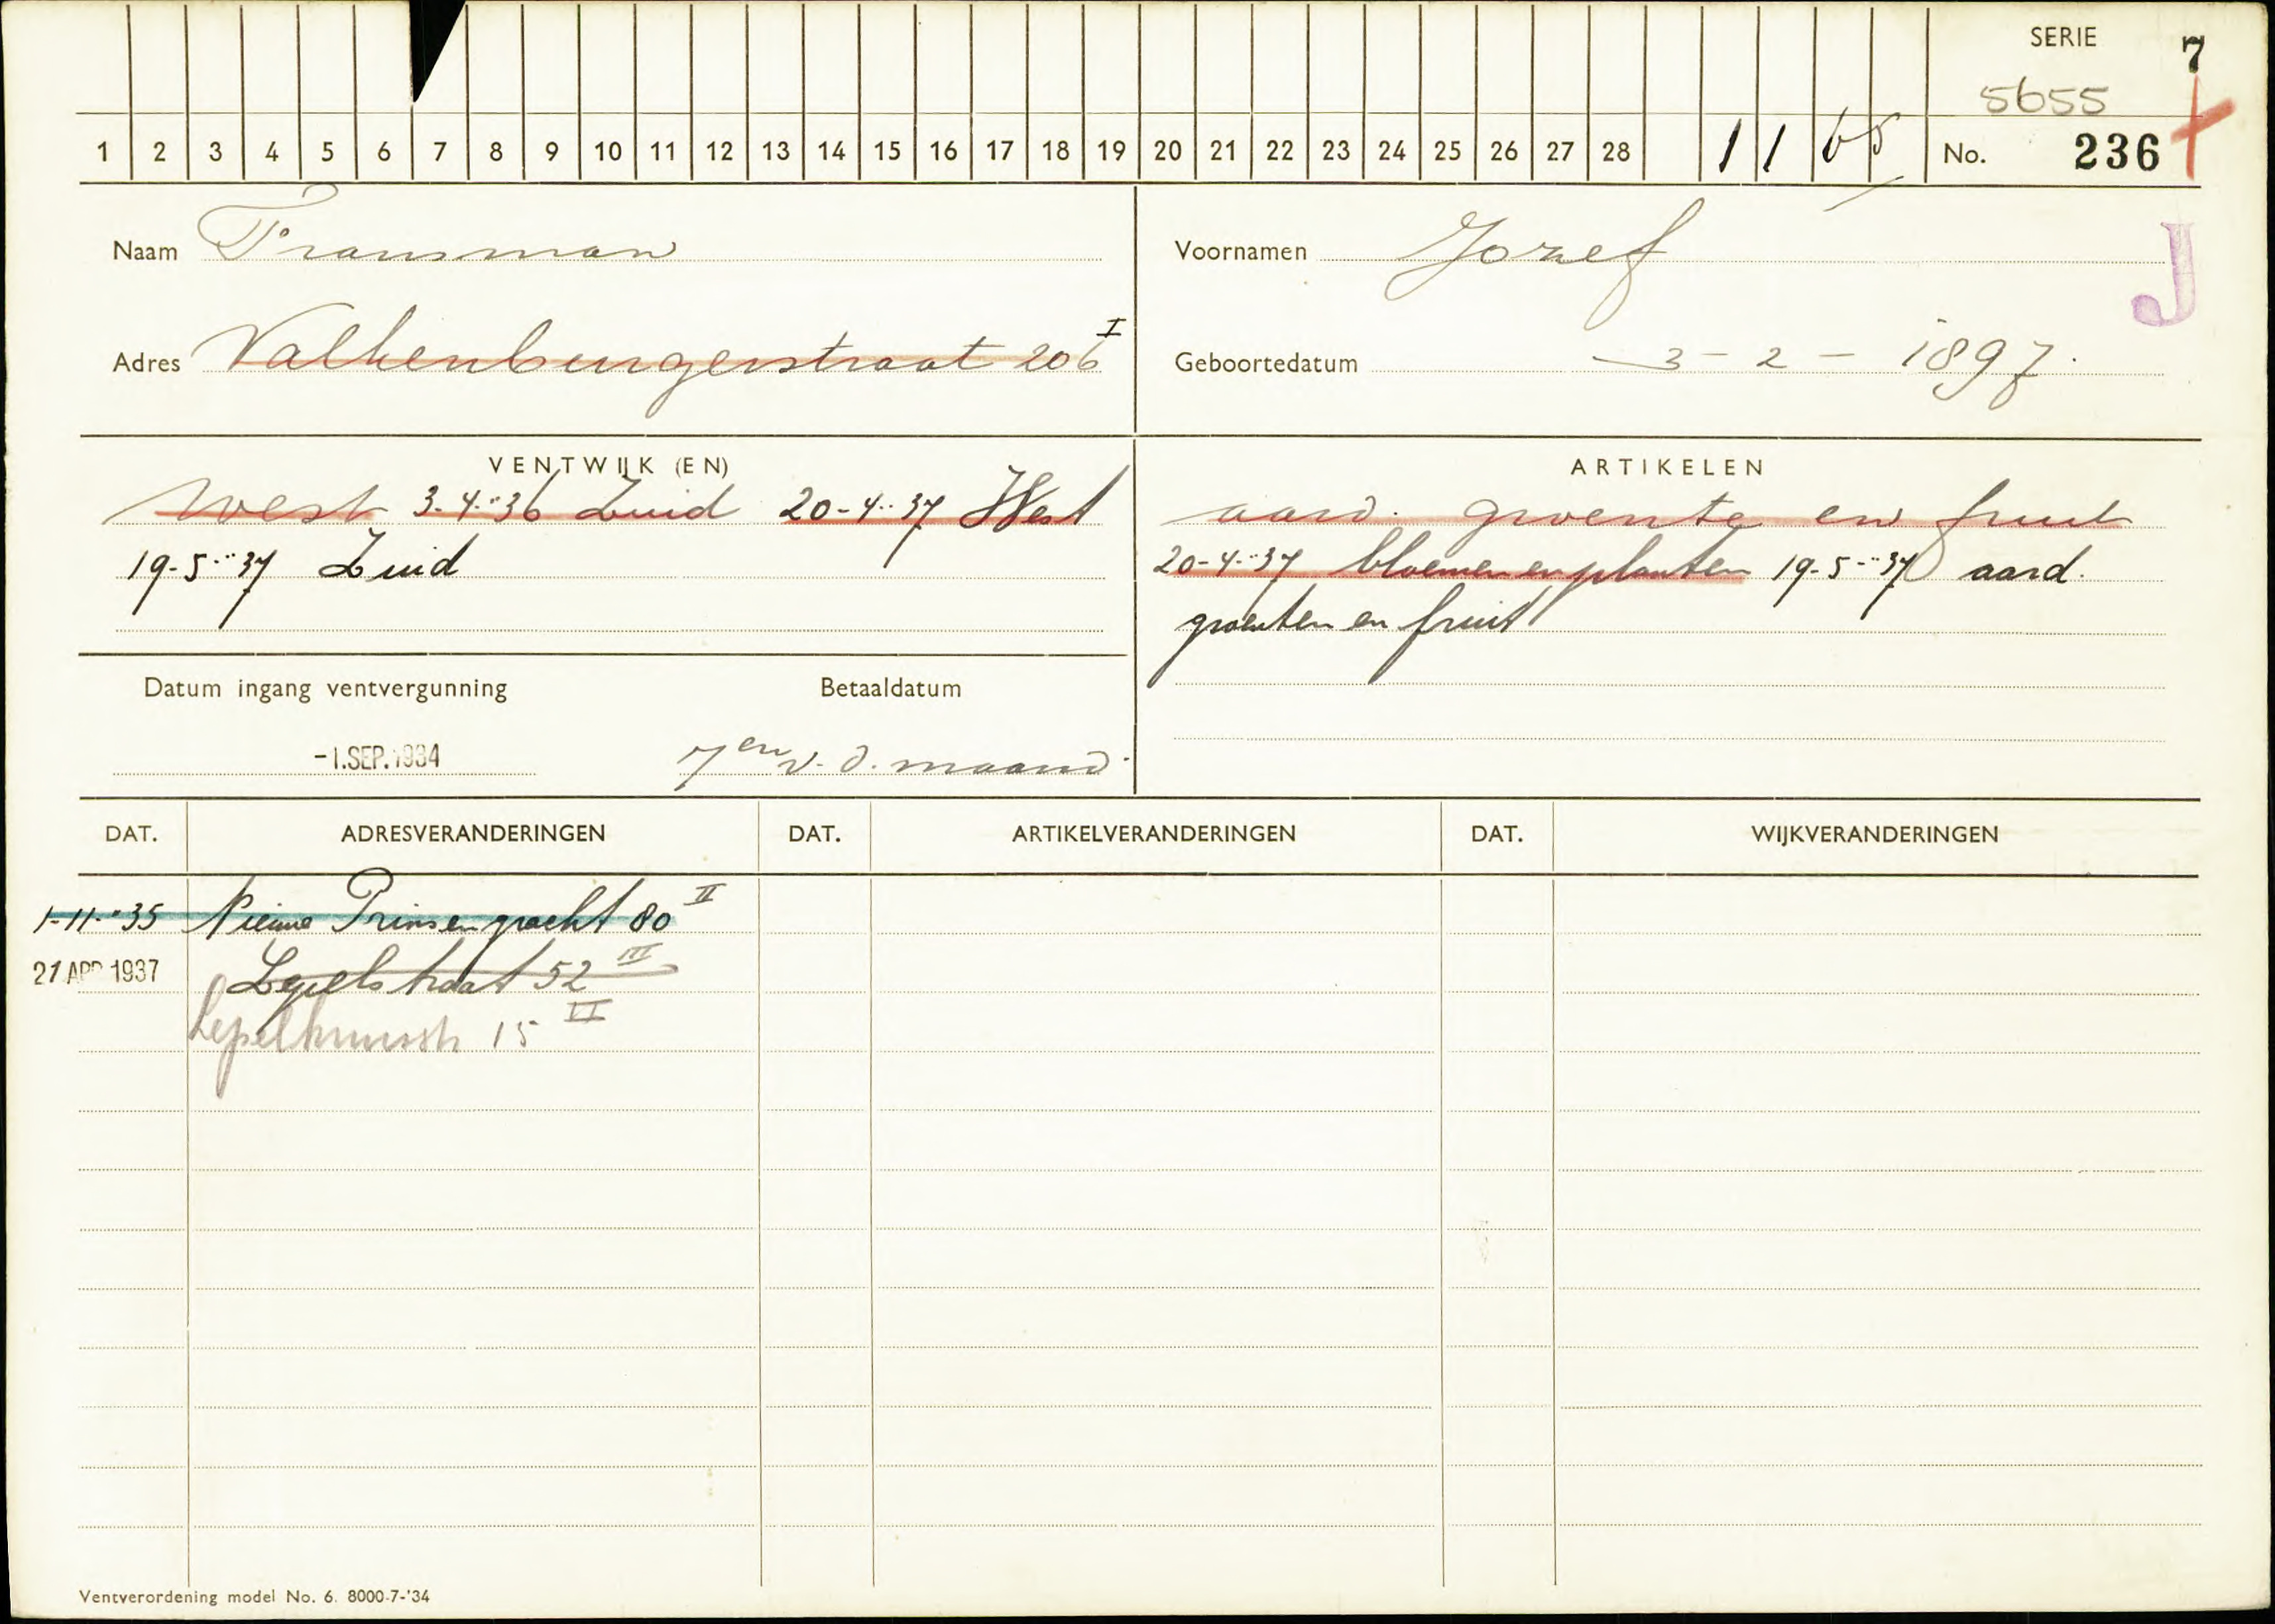 SERIE 7
5655
1 2 3 4 5 6 7 8 9 10 11 12 13 14 15 16 17 18 19 20 21 22 23 24 25 26 27 28 1 1 No. 236
Naam Fransman
Voornamen Jozef
J
Adres Valkenburgerstraat 206 I
Geboortedatum 3-2-1897.
VENTWIJK (EN)
West 3-4-'36 Zuid 20-4-'37 West
19-5-'37 Zuid
ARTIKELEN
aard. groente en fruit
20-4-'37 bloemen en planten 19-5-'37 aard.
groenten en fruit
Datum ingang ventvergunning Betaaldatum
-1.SEP.1934 7en v. d. maand.
DAT. ADRESVERANDERINGEN DAT. ARTIKELVERANDERINGEN DAT. WIJKVERANDERINGEN
1-11-'35 Nieuwe Prinsengracht 80 II
21 APR 1937 Lepelstraat 52 III
15 VI
Ventverordening model No. 6. 8000-7-'34